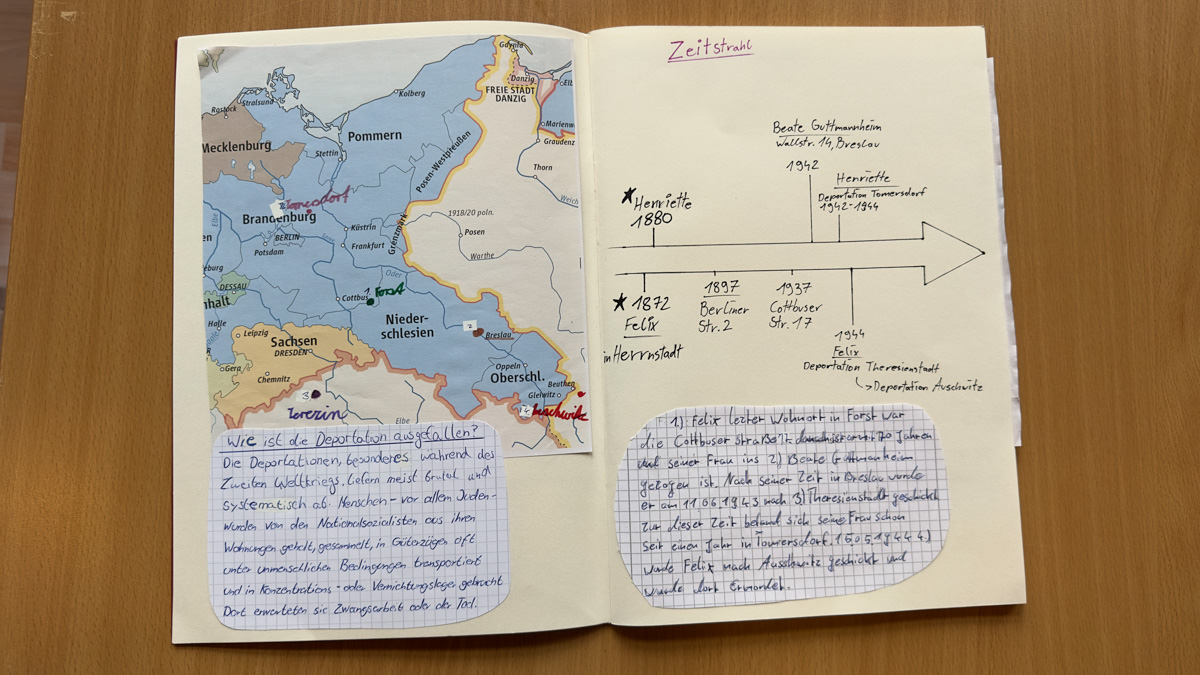 Gdynia
Danzig
FREIE STADT
DANZIG
Elb
Marienw
Graudenz
Thorn
Weich
Kolberg
Stralsund
Rostock
Pommern
Mecklenburg
Stettin
Posen-Westpreußen
Grenzmark
2 Tomersdorf
Brandenburg
BERLIN
Potsdam
Küstrin
Frankfurt
1918/20 poln.
Posen
Warthe
Elbe
en
eburg
DESSAU
nhalt
Halle
Oder
Cottbus
1. Forst
Nieder-
schlesien
2
Breslau
Leipzig
Sachsen
DRESDEN
Gera
Chemnitz
Oppeln
Oberschl.
Beuthen
Gleiwitz
3
Terezin
Elbe
4 Auschwitz
Wie ist die Deportation ausgefallen?
Die Deportationen, besonderes während des
Zweiten Weltkriegs, liefern meist brutal und
systematisch ab. Menschen - vor allem Juden -
wurden von den Nationalsozialisten aus ihren
Wohnungen geholt, gesammelt, in Güterzügen oft
unter unmenschlichen Bedingungen transportiert
und in Konzentrations- oder Vernichtungslager gebracht
Dort erwarteten sie Zwangsarbeit oder der Tod.
Zeitstrahl
Beate Guttmannheim
Wallstr. 14, Breslau
1942
Henriette
Deportation Tomersdorf
1942-1944
Henriette
1880
1872
Felix
in Herrnstadt
1897
Berliner
Str. 2
1937
Cottbuser
Str. 17
1944
Felix
Deportation Theresienstadt
Deportation Auschwitz
1.) Felix letzter Wohnort in Forst war
die Cottbuser straße 17 70 Jahren
mit seiner Frau ins 2) Beate Guttmanheim
gezogen ist. Nach seiner Zeit in Breslau wurde
er am 11.06.1943 nach 3) Theresienstadt geschickt
Zur dieser Zeit befand sich seine Frau schon
seit einen Jahr in Tomersdorf. 16.05.1944 4.)
wurde Felix nach Ausschwitz geschickt und
wurde dort Ermordet.